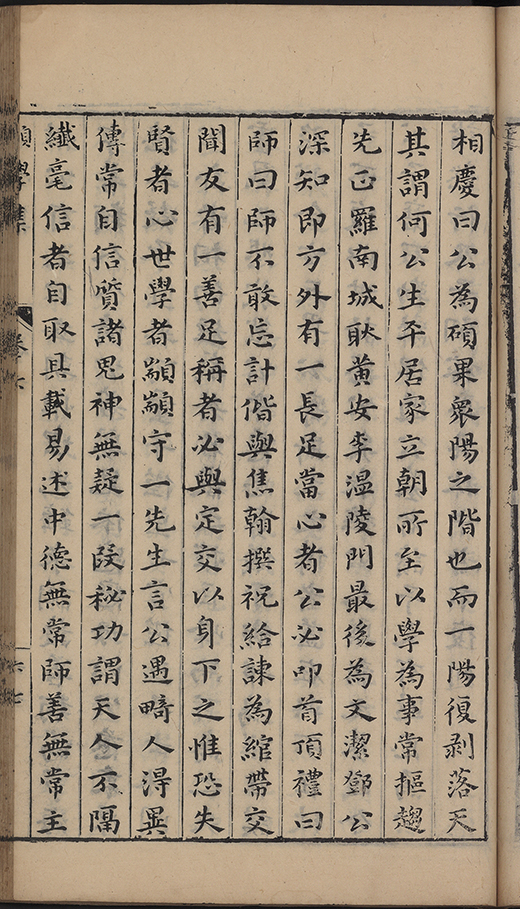 相慶曰公為碩果眾陽之階也而一陽復剥落天
其謂何公生平居家立朝所至以學為事常摳趨
先正羅南城耿黄安李温陵門最後為文潔鄧公
深知即方外有一長足當心者公必叩首頂禮曰
師曰師不敢忘計偕與焦翰撰祝給諫為綰帶交
聞友有一善足稱者必與定交以身下之惟恐失
賢者心世學者顓顓守一先生言公遇畸人淂異
傳常自信質諸鬼神無疑一段秘功謂天人不隔
纖毫信者自取具載易述中德無常師善無常主
學集 卷六 六七